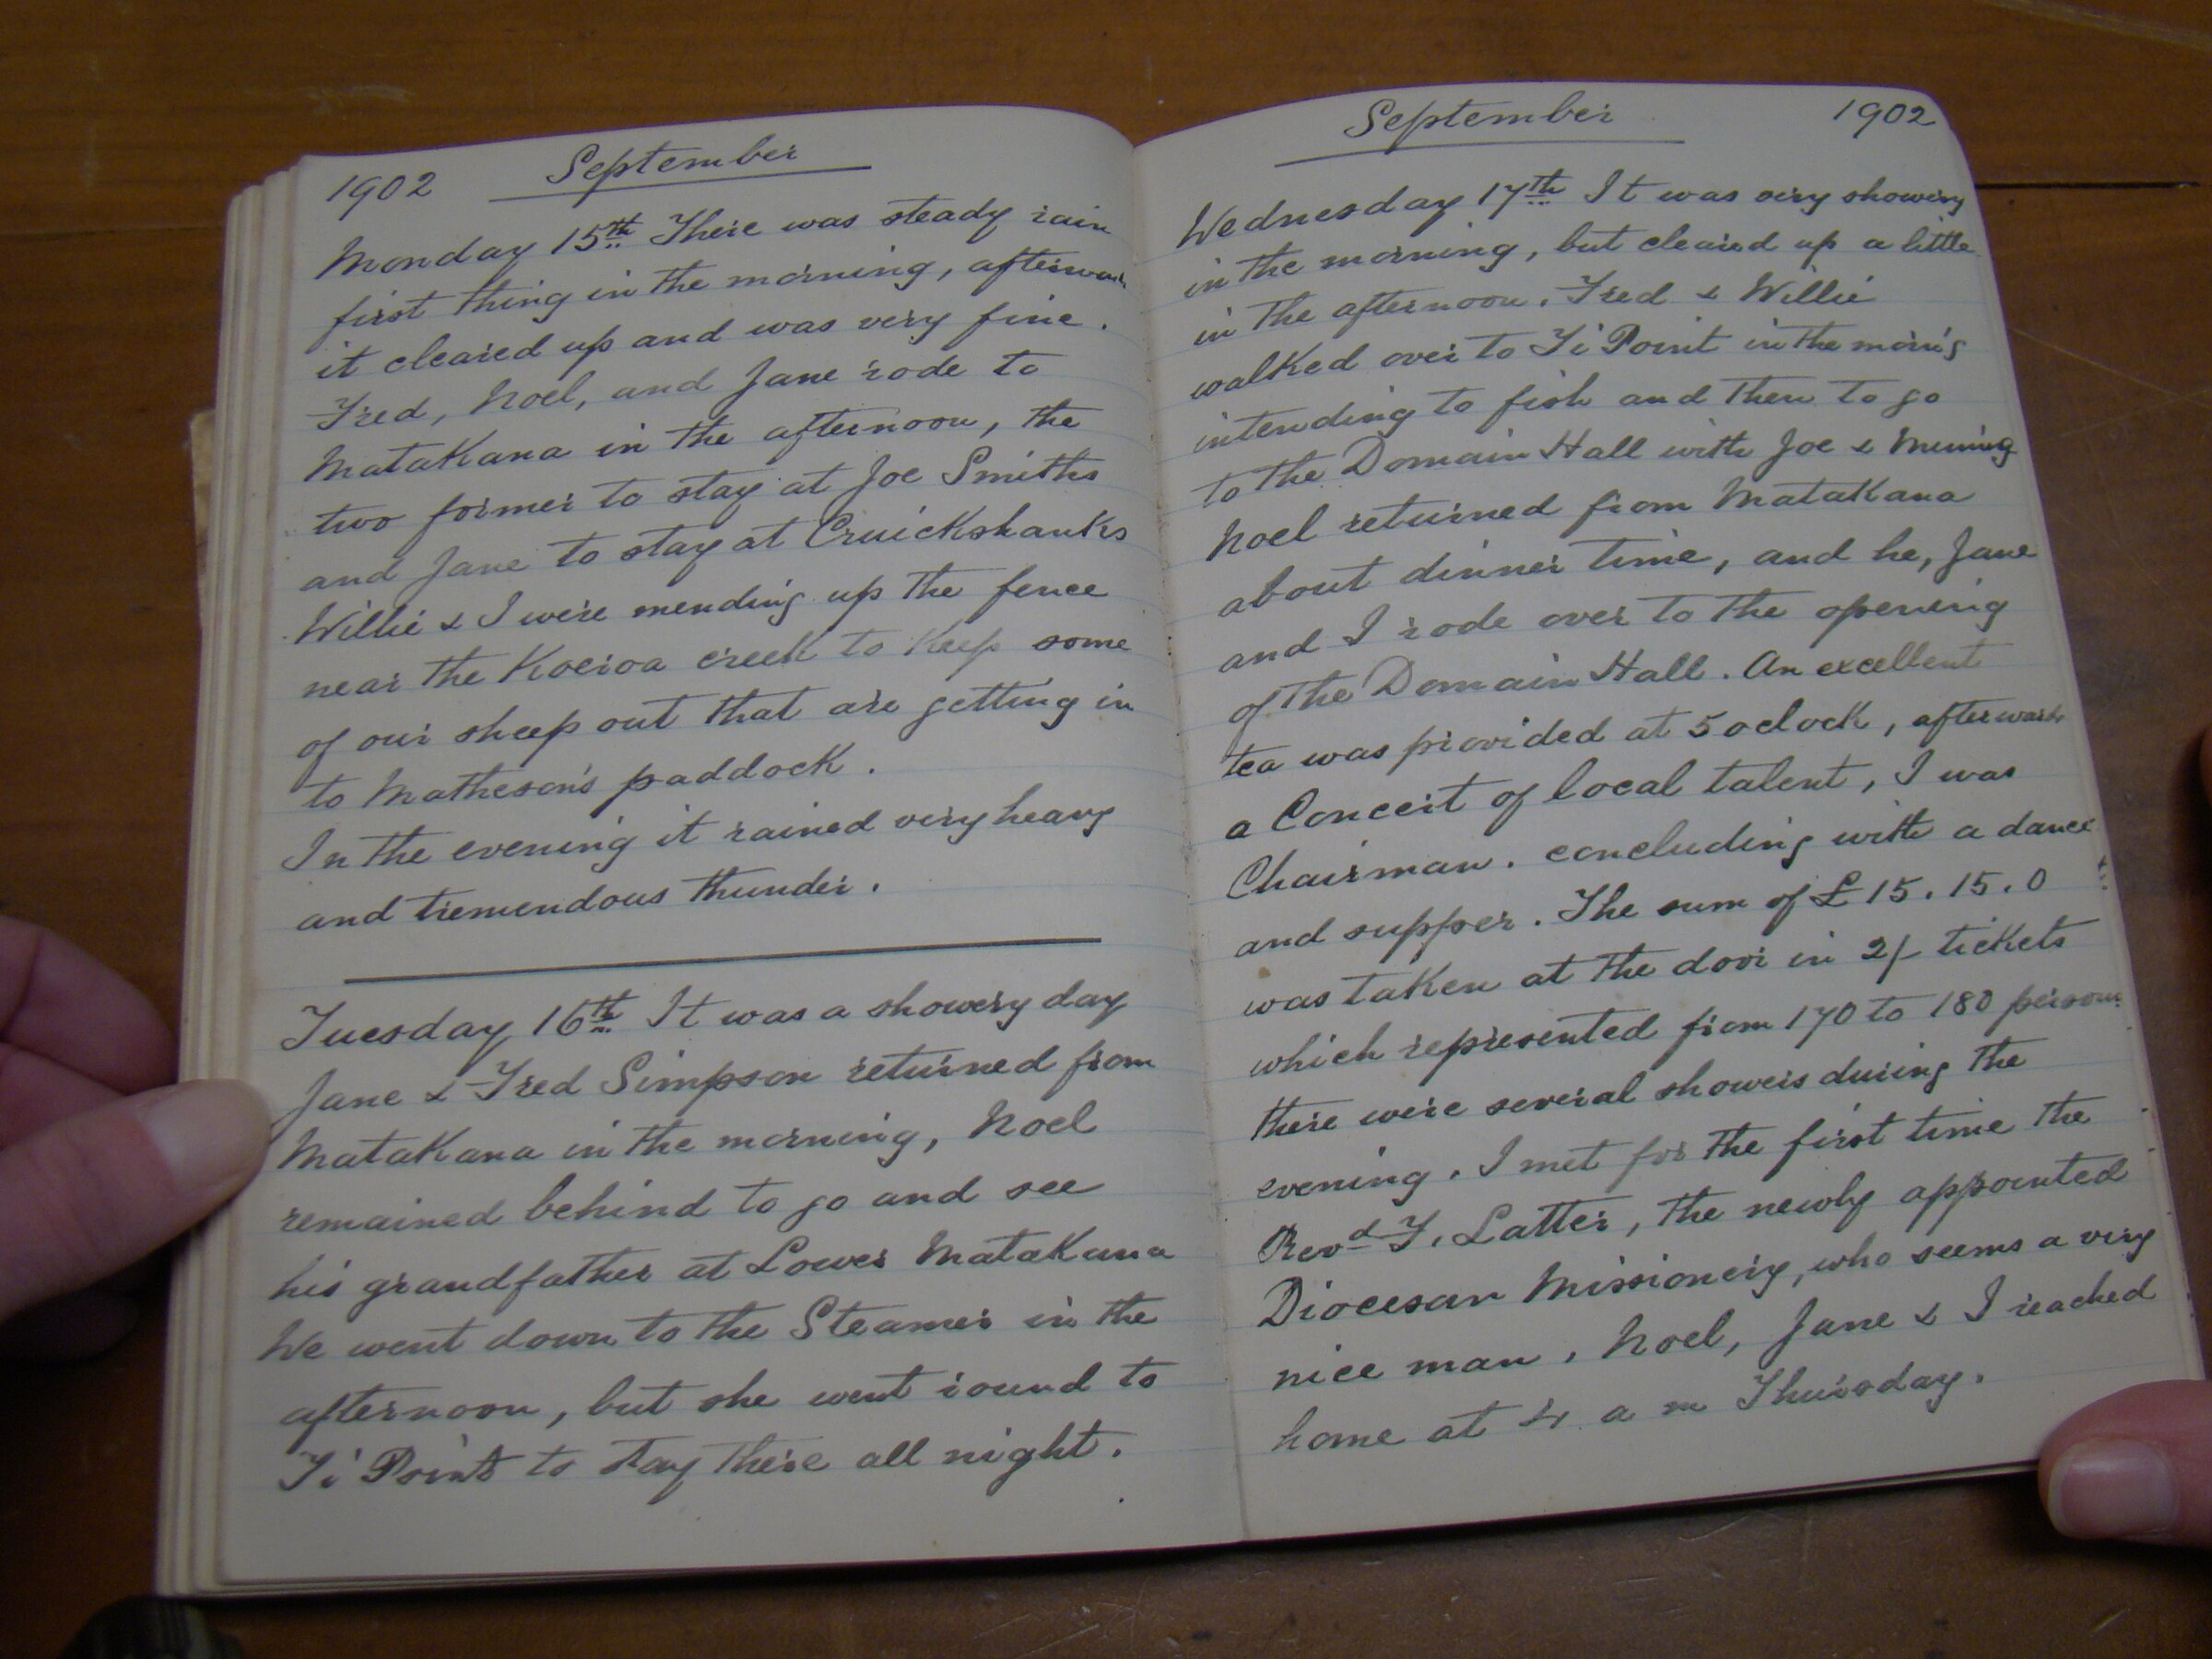 1902 September
Monday 15th There was steady rain
first thing in the morning, afterwards
it cleared up and was very fine.
Fred, Noel, and Jane rode to
Matakana in the afternoon, the
two former to stay at Joe Smiths
and Jane to stay at Cruickshanks
Willie & I were mending up the fence
near the Koeroa creek to keep some
of our sheep out that are getting in
to Matheson's paddock.
In the evening it rained very heavy
and tremendous thunder.
Tuesday 16th It was a showery day
Jane & Fred Simpson returned from
Matakana in the morning, Noel
remained behind to go and see
his grandfather at Lower Matakana
We went down to the Steamer in the
afternoon, but she went round to
Ti Point to stay there all night.
September 1902
Wednesday 17th It was very showery
in the morning, but cleared up a little
in the afternoon. Fred & Willie
walked over to Ti Point in the morn'g
intending to fish and then to go
to the Domain Hall with Joe &
Noel returned from Matakana
about dinner time, and he, Jane
and I rode over to the opening
of the Domain Hall. An excellent
tea was provided at 5 oclock, afterwards
a Concert of local talent, I was
Chairman. concluding with a dance
and supper. The sum of £15.15.0
was taken at the door in 2/- tickets
which represented from 170 to 180 persons
there were several showers during the
evening. I met for the first time the
Revd F. Latter, the newly appointed
Diocesan Missionery, who seems a very
nice man. Noel, Jane & I reached
home at 4 a m Thursday.